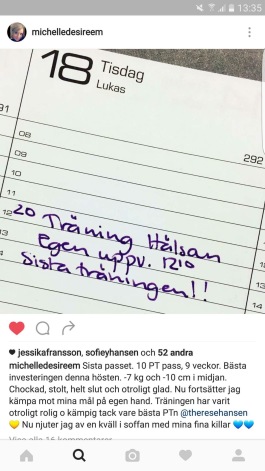 13:35
michelledesireem
18 Tisdag
Lukas
291
292
08
09
10
11
12
13
1220 Träning Hälsan
Egen uppv. 1210
Sista träningen!!
jessikafransson, sofieyhansen och 52 andra
michelledesireem Sista passet. 10 PT pass, 9 veckor. Bästa
investeringen denna hösten. -7 kg och -10 cm i midjan.
Chockad, stolt, helt slut och otroligt glad. Nu fortsätter jag
kämpa mot mina mål på egen hand. Träningen har varit
otroligt rolig o kämpig tack vare bästa PTn @theresehansen
💛 Nu njuter jag av en kväll i soffan med mina fina killar 💙💙
Visa alla 16 kommentarer